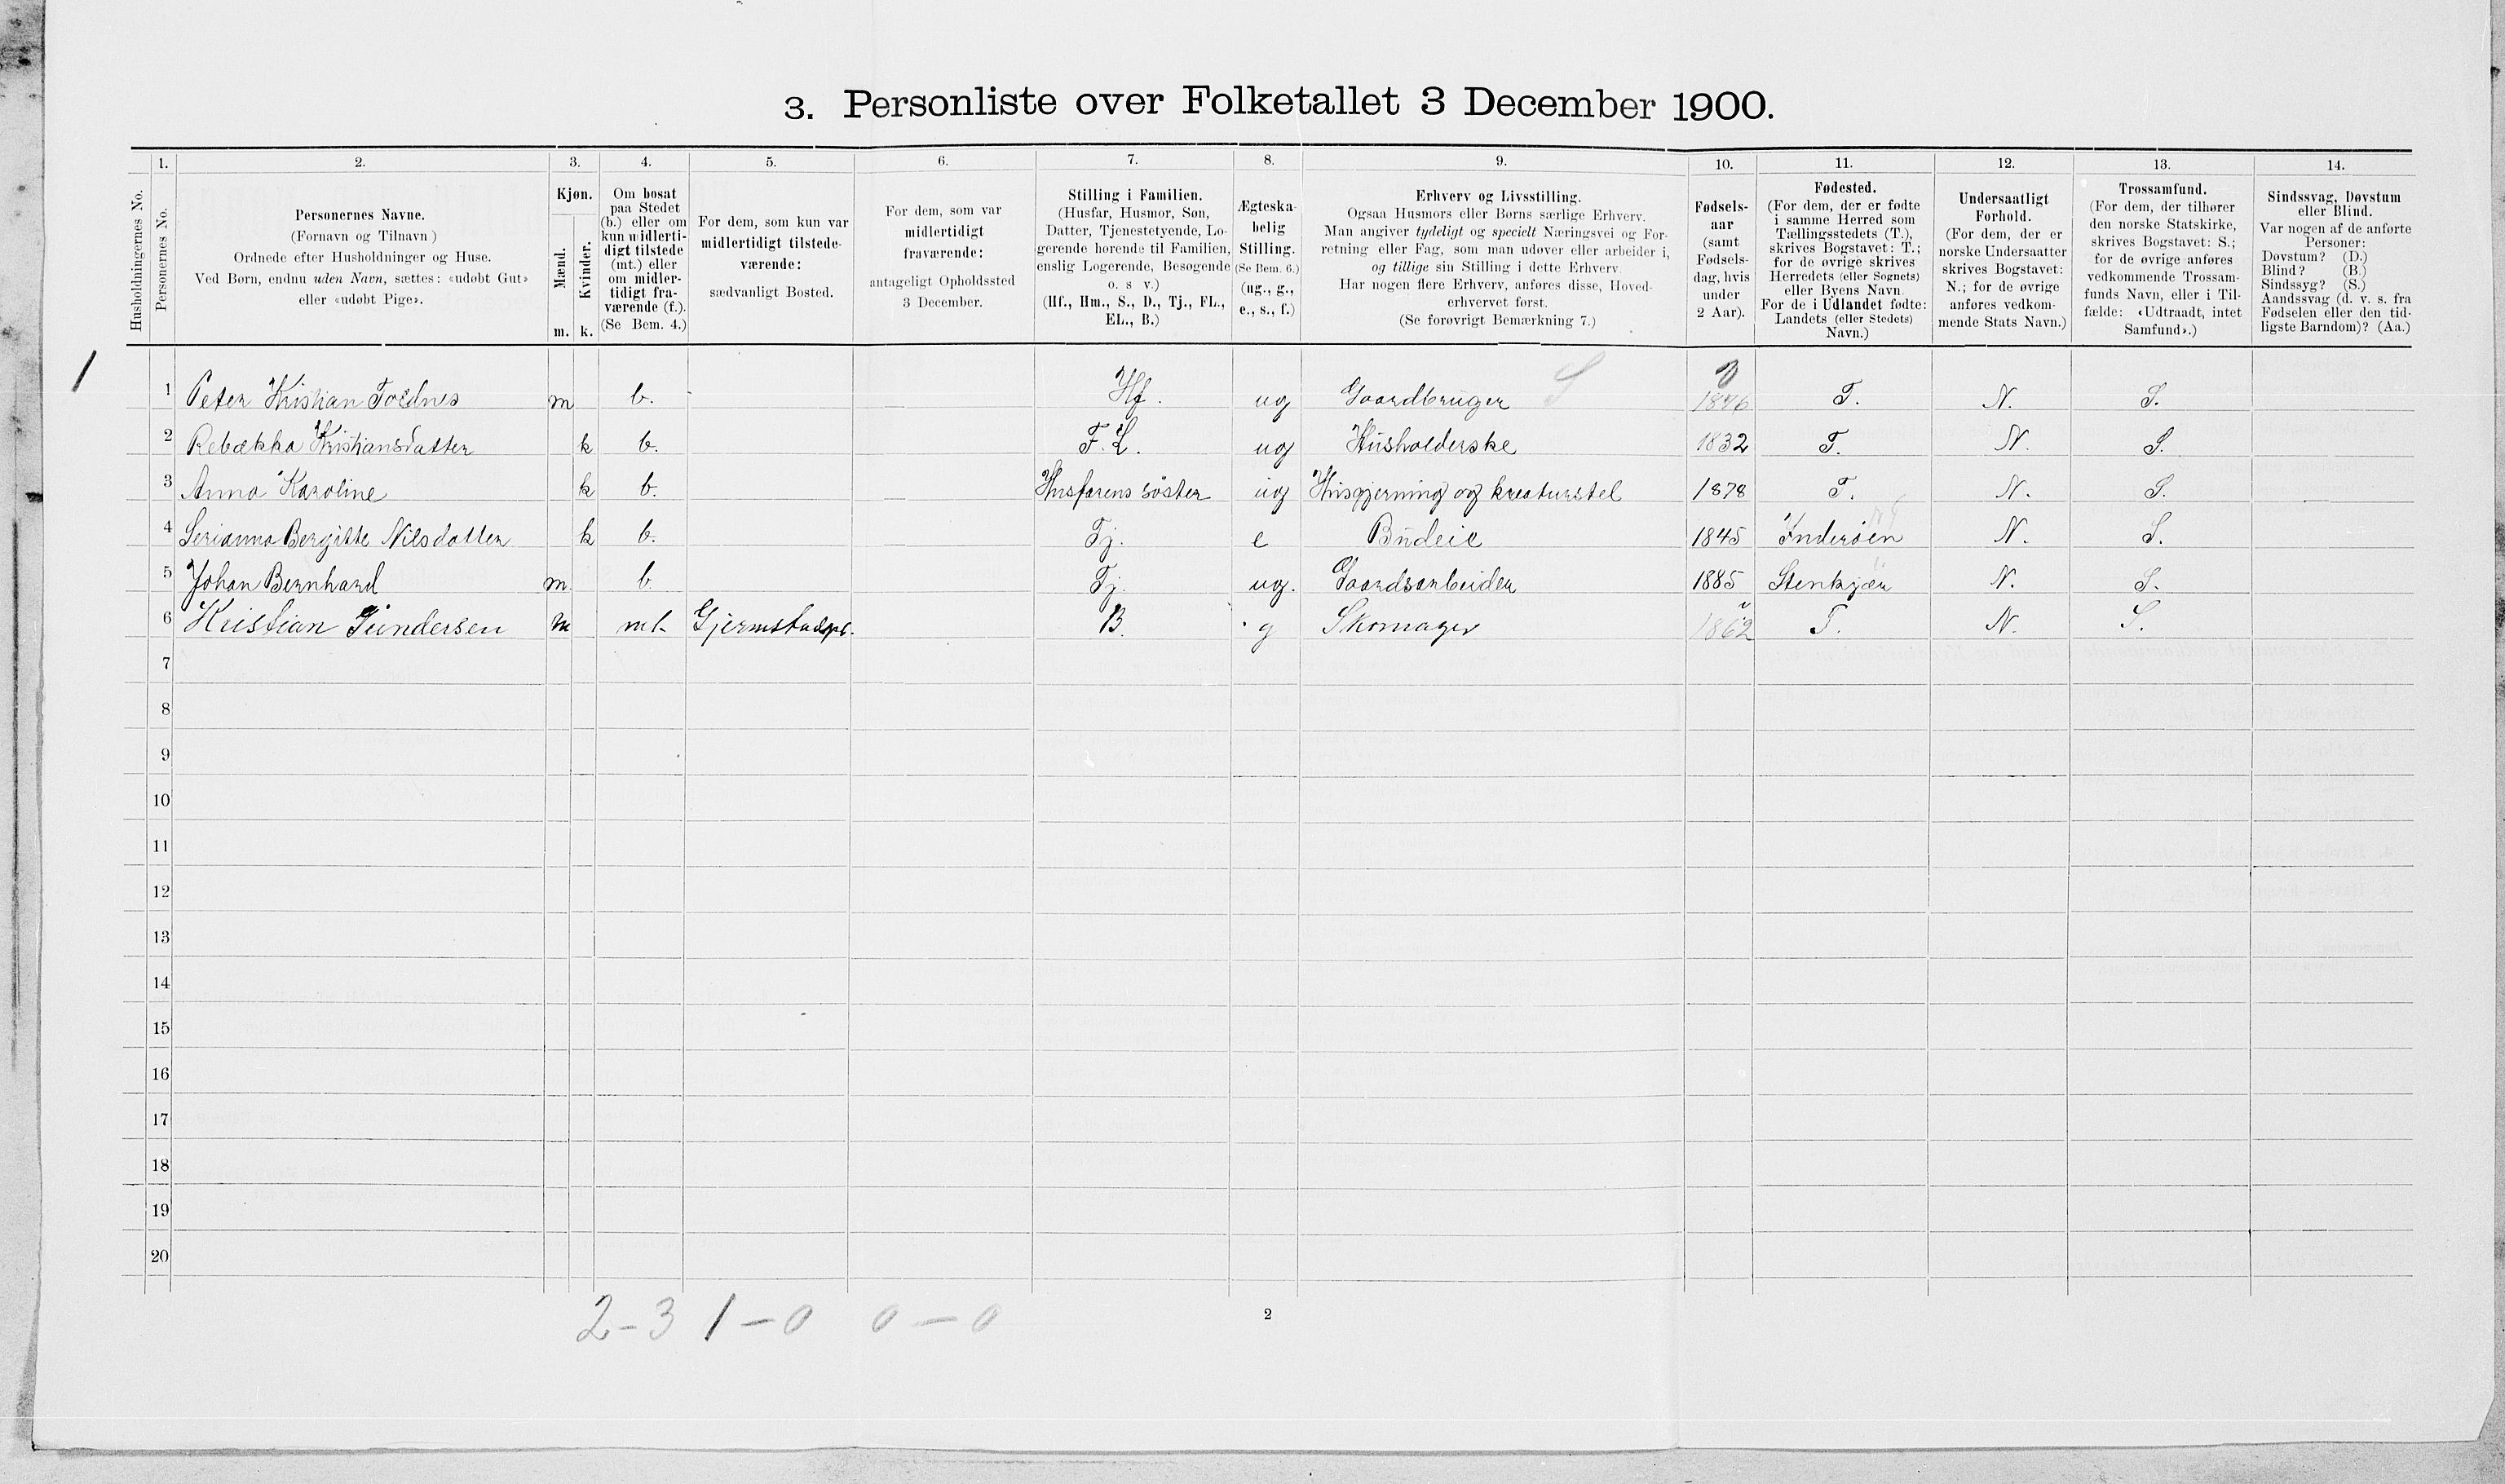 3. Personliste over Folketallet 3 December 1900.
1. 2. 3. 4. 5. 6. 7. 8. 9. 10. 11. 12. 13. 14.
Husholdningernes No.
Personernes No.
Personernes Navne.
(Fornavn og Tilnavn)
Ordnede efter Husholdninger og Huse.
Ved Børn, endnu uden Navn, sættes: «udøbt Gut»
eller «udøbt Pige».
Kjøn.
Mænd.
Kvinder.
m. k.
Om bosat
paa Stedet
(b.) eller om
kun midlerti-
digt tilstede
(mt.) eller
om midler-
tidigt fra-
værende (f.).
(Se Bem. 4.)
For dem, som kun var
midlertidigt tilstede-
værende:
sædvanligt Bosted.
For dem, som var
midlertidigt
fraværende:
antageligt Opholdssted
3 December.
Stilling i Familien.
(Husfar, Husmor, Søn,
Datter, Tjenestetyende, Lo-
gerende hørende til Familien,
enslig Logerende, Besøgende
o. s v.)
(Hf., Hm., S., D., Tj., FL.,
EL., B.)
Ægteska-
belig
Stilling.
(Se Bem. 6.)
(ug., g.,
e., s., f.)
Erhverv og Livsstilling.
Ogsaa Husmors eller Børns særlige Erhverv.
Man angiver tydeligt og specielt Næringsvei og For-
retning eller Fag, som man udøver eller arbeider i,
og tillige sin Stilling i dette Erhverv.
Har nogen flere Erhverv, anføres disse, Hoved-
erhvervet først.
(Se forøvrigt Bemærkning 7.)
Fødsels-
aar
(samt
Fødsels-
dag, hvis
under
2 Aar).
Fødested.
(For dem, der er fødte
i samme Herred som
Tællingsstedets (T.),
skrives Bogstavet: T.;
for de øvrige skrives
Herredets (eller Sognets)
eller Byens Navn.
For de i Udlandet fødte:
Landets (eller Stedets)
Navn.)
Undersaatligt
Forhold.
(For dem, der er
norske Undersaatter
skrives Bogstavet:
N.; for de øvrige
anføres vedkom-
mende Stats Navn.)
Trossamfund.
(For dem, der tilhører
den norske Statskirke,
skrives Bogstavet: S.;
for de øvrige anføres
vedkommende Trossam-
funds Navn, eller i Til-
fælde: «Udtraadt, intet
Samfund».)
Sindssvag, Døvstum
eller Blind.
Var nogen af de anførte
Personer:
Døvstum? (D.)
Blind? (B.)
Sindssyg? (S.)
Aandssvag (d. v. s. fra
Fødselen eller den tid-
ligste Barndom)? (Aa.)
1
1 Peter Kristian Toldnes m b. Hf. ug Gaardbruger S 1876 T. N. S.
2 Rebækka Kristiansdatter k b. F. L. ug Husholderske 1832 T. N. S.
3 Anna Karoline k b. Husfarens söster ug Husgjerning og kreaturstel 1878 T. N. S.
4 Serianna Bergitte Nilsdatter k b. Tj. e Budeie 1845 Inderöen N. S.
5 Johan Bernhard m. b. Tj. ug. Gaardsarbeider 1885 Stenkjær N. S.
6 Kristian Gundersen m mt. Gjermstadpl. B. g Skomager 1862 T. N. S.
7
8
9
10
11
12
13
14
15
16
17
18
19
20
2-3 1-0 0-0
2